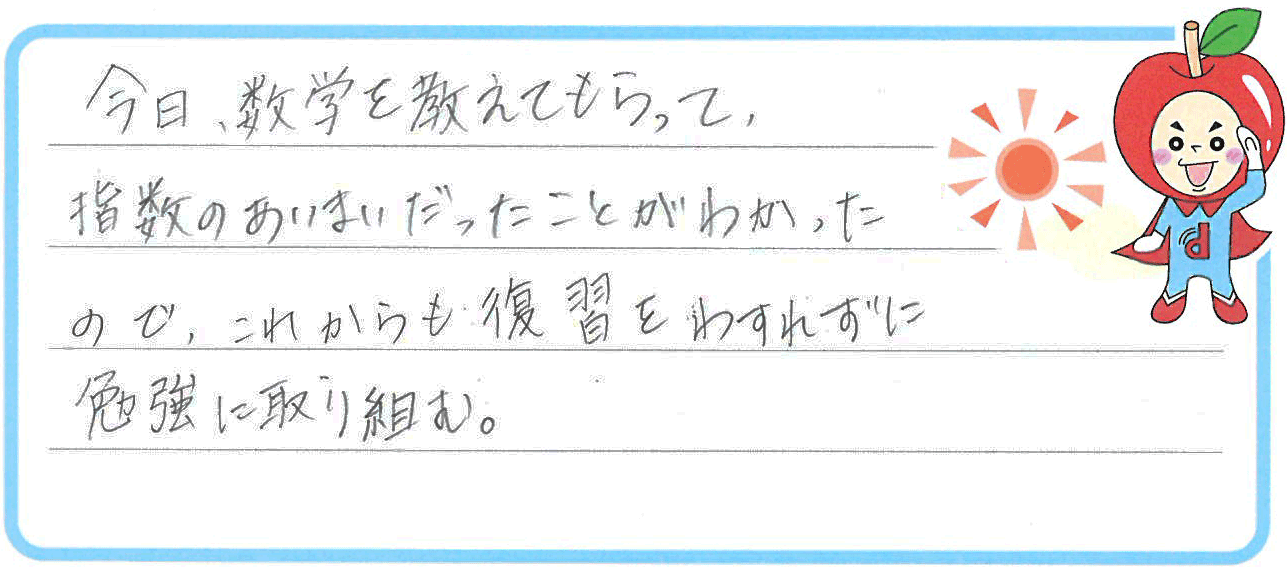 今日、数学を教えてもらって、
指数のあいまいだったことがわかった
ので、これからも復習をわすれずに
勉強に取り組む。